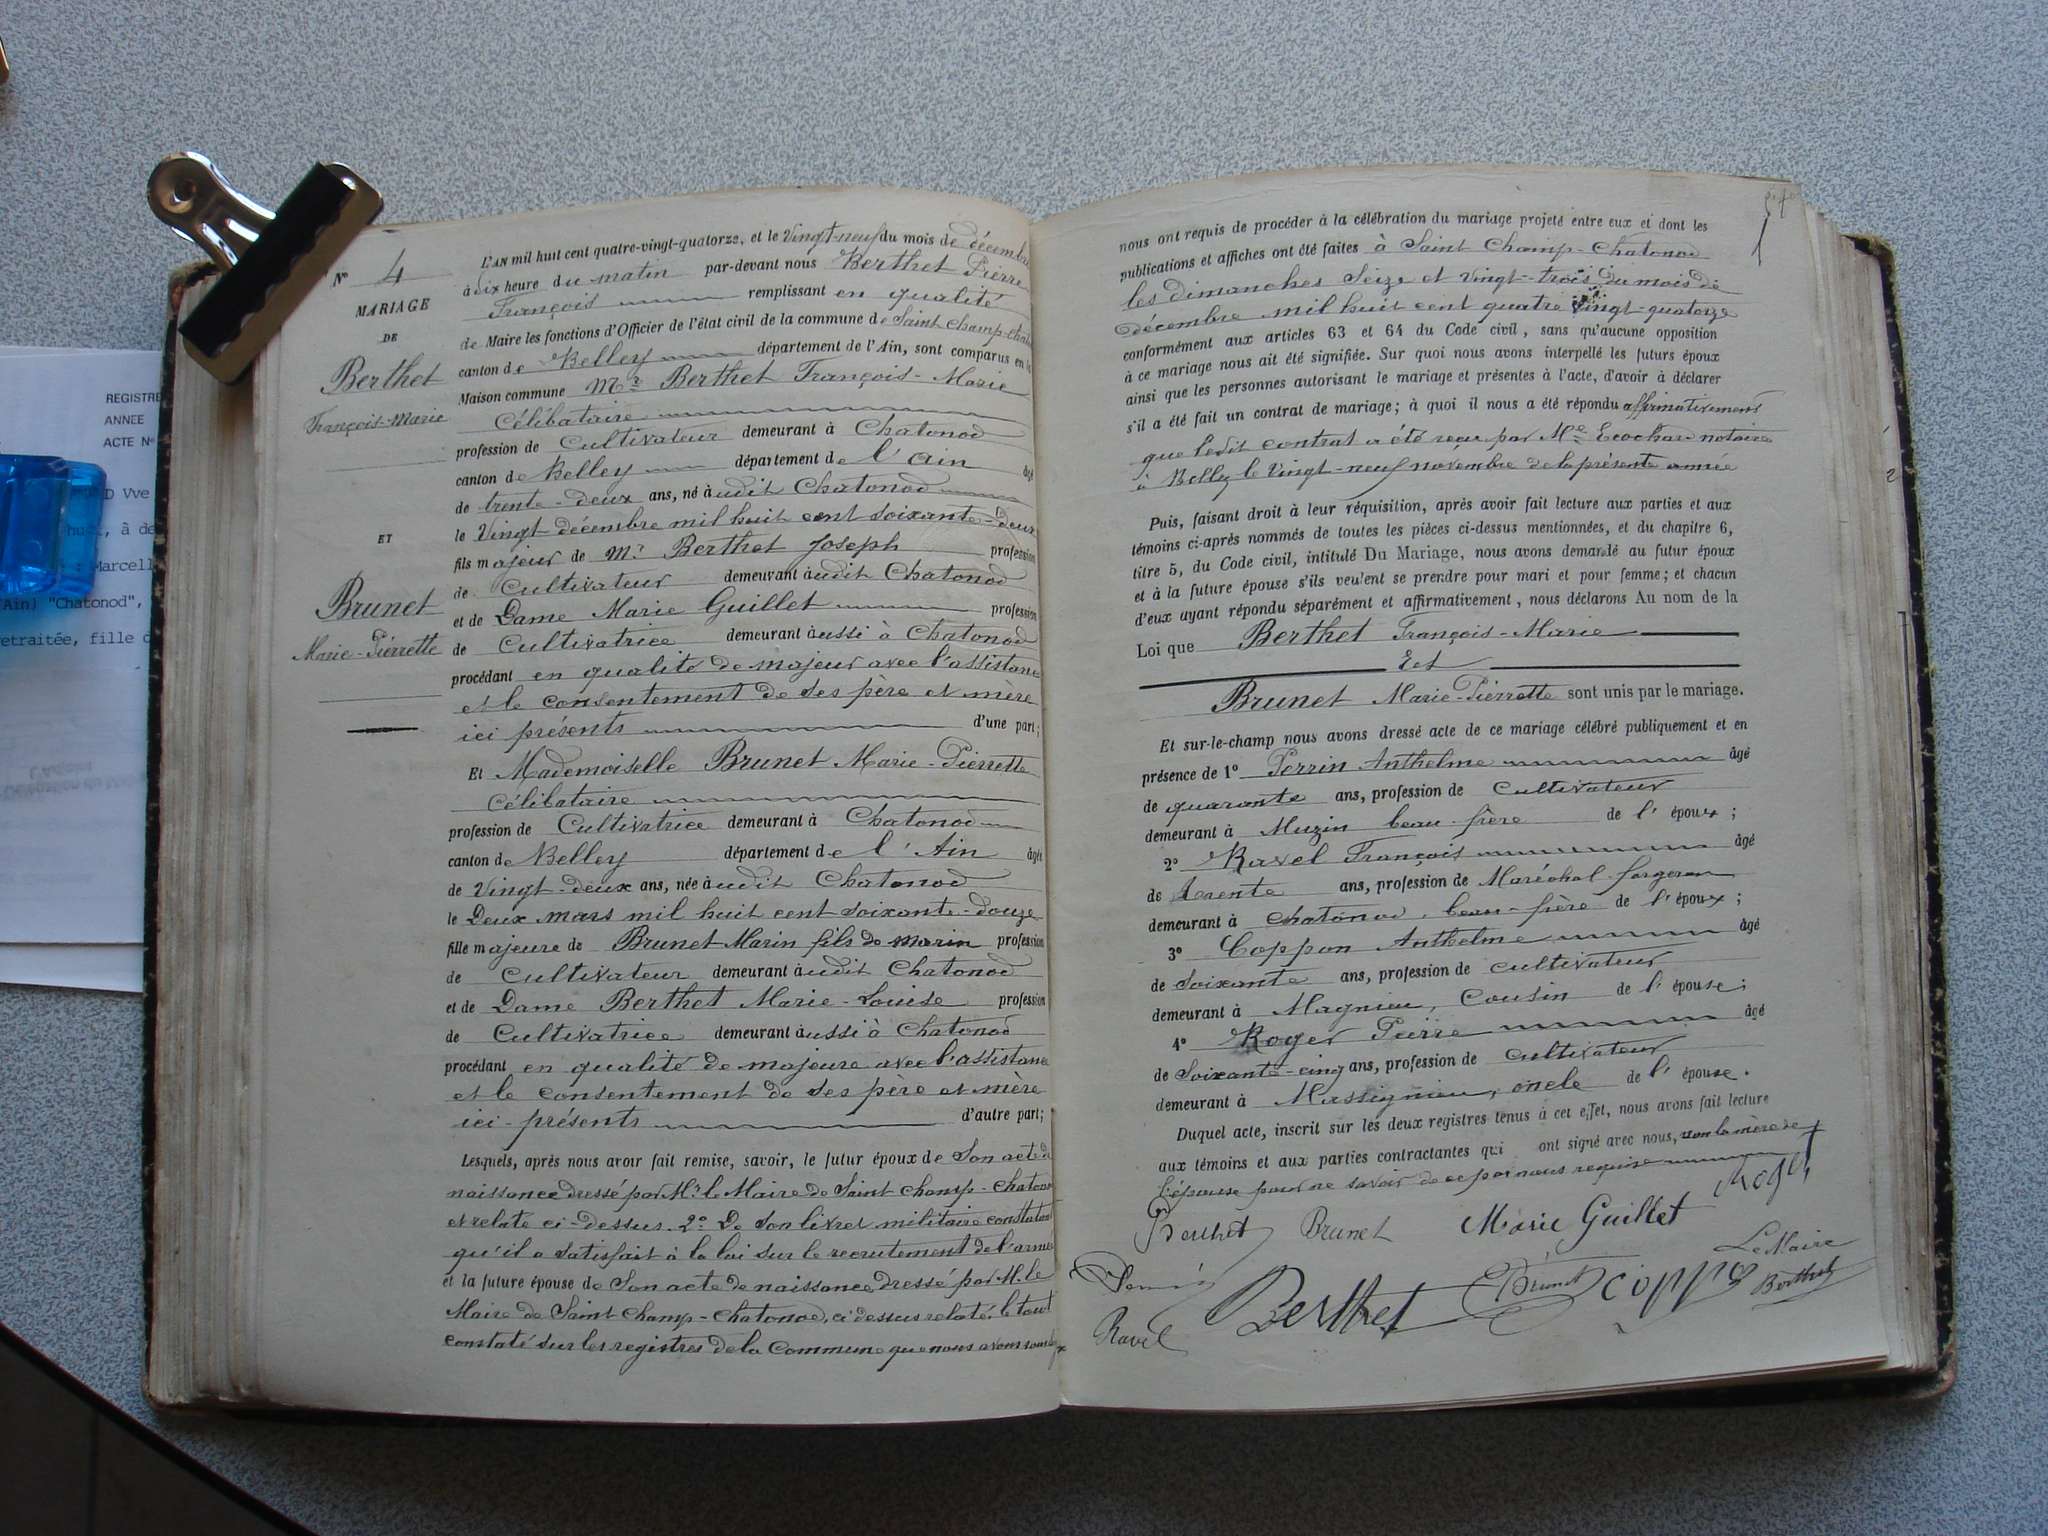 N° 4
MARIAGE
DE
Berthet
François-Marie
ET
Brunet
Marie-Pierrette
L'AN mil huit cent quatre-vingt-quatorze, et le Vingt-neuf du mois de décembre
à dix heure du matin par-devant nous Berthet Pierre
François remplissant en qualité
de Maire les fonctions d'Officier de l'état civil de la commune de Saint Champ-Chato
canton de Belley département de l'Ain, sont comparus en la
Maison commune Mr Berthet François-Marie
Célibataire
profession de Cultivateur demeurant à Chatonod
canton de Belley département de l'Ain âgé
de trente-deux ans, né audit Chatonod
le Vingt décembre mil huit cent soixante-deux
fils majeur de Mr Berthet Joseph profession
de Cultivateur demeurant audit Chatonod
et de Dame Marie Guillet profession
de Cultivatrice demeurant aussi à Chatonod
procédant en qualité de majeur avec l'assistance
et le consentement de ses père et mère
ici présents d'une part;
Et Mademoiselle Brunet Marie-Pierrette
Célibataire
profession de Cultivatrice demeurant à Chatonod
canton de Belley département de l'Ain âgée
de Vingt-deux ans, née audit Chatonod
le Deux mars mil huit cent soixante-douze
fille majeure de Brunet Marin fils de Marin profession
de Cultivateur demeurant audit Chatonod
et de Dame Berthet Marie-Louise profession
de Cultivatrice demeurant aussi à Chatonod
procédant en qualité de majeure avec l'assistance
et le consentement de ses père et mère
ici-présents d'autre part;
Lesquels, après nous avoir fait remise, savoir, le futur époux de Son acte de
naissance dressé par Mr le Maire de Saint Champ-Chatonod
et relaté ci-dessus. 2° De son livret militaire constatant
qu'il a satisfait à la loi sur le recrutement de l'armée
et la future épouse de Son acte de naissance dressé par M. le
Maire de Saint Champ-Chatonod, ci dessus relaté. le tout
constaté sur les registres de la Commune que nous avons
nous ont requis de procéder à la célébration du mariage projeté entre eux et dont les
publications et affiches ont été faites à Saint Champ-Chatonod
les dimanches Seize et vingt-trois du mois de
décembre mil huit cent quatre vingt-quatorze
conformément aux articles 63 et 64 du Code civil, sans qu'aucune opposition
à ce mariage nous ait été signifiée. Sur quoi nous avons interpellé les futurs époux
ainsi que les personnes autorisant le mariage et présentes à l'acte, d'avoir à déclarer
s'il a été fait un contrat de mariage; à quoi il nous a été répondu affirmativement
que ledit contrat a été reçu par Me Ecochard notaire
à Belley le Vingt-neuf novembre de la présente année
Puis, faisant droit à leur réquisition, après avoir fait lecture aux parties et aux
témoins ci-après nommés de toutes les pièces ci-dessus mentionnées, et du chapitre 6,
titre 5, du Code civil, intitulé Du Mariage, nous avons demandé au futur époux
et à la future épouse s'ils veulent se prendre pour mari et pour femme; et chacun
d'eux ayant répondu séparément et affirmativement, nous déclarons Au nom de la
Loi que Berthet François-Marie
Et
Brunet Marie-Pierrette sont unis par le mariage.
Et sur-le-champ nous avons dressé acte de ce mariage célébré publiquement et en
présence de 1° Perrin Anthelme âgé
de quarante ans, profession de Cultivateur
demeurant à Muzin beau-frère de l'époux;
2° Ravel François âgé
de trente ans, profession de Maréchal-forgeron
demeurant à Chatonod, beau-frère de l'époux;
3° Coppon Anthelme âgé
de Soixante ans, profession de cultivateur
demeurant à Magnieu, Cousin de l'épouse;
4° Roger Pierre âgé
de Soixante-cinq ans, profession de cultivateur
demeurant à Massignieu, oncle de l'épouse.
Duquel acte, inscrit sur les deux registres tenus à cet effet, nous avons fait lecture
aux témoins et aux parties contractantes qui ont signé avec nous, non la mère de
l'épouse pour ne savoir de ce par nous requise
Berthet Brunet Marie Guillet Roger
Berthet Brunet Coppon Le Maire
Berthet
Ravel
REGISTRE
ANNEE
ACTE N°
D Vve
à de
: Marcell
(Ain) "Chatonod",
retraitée, fille d